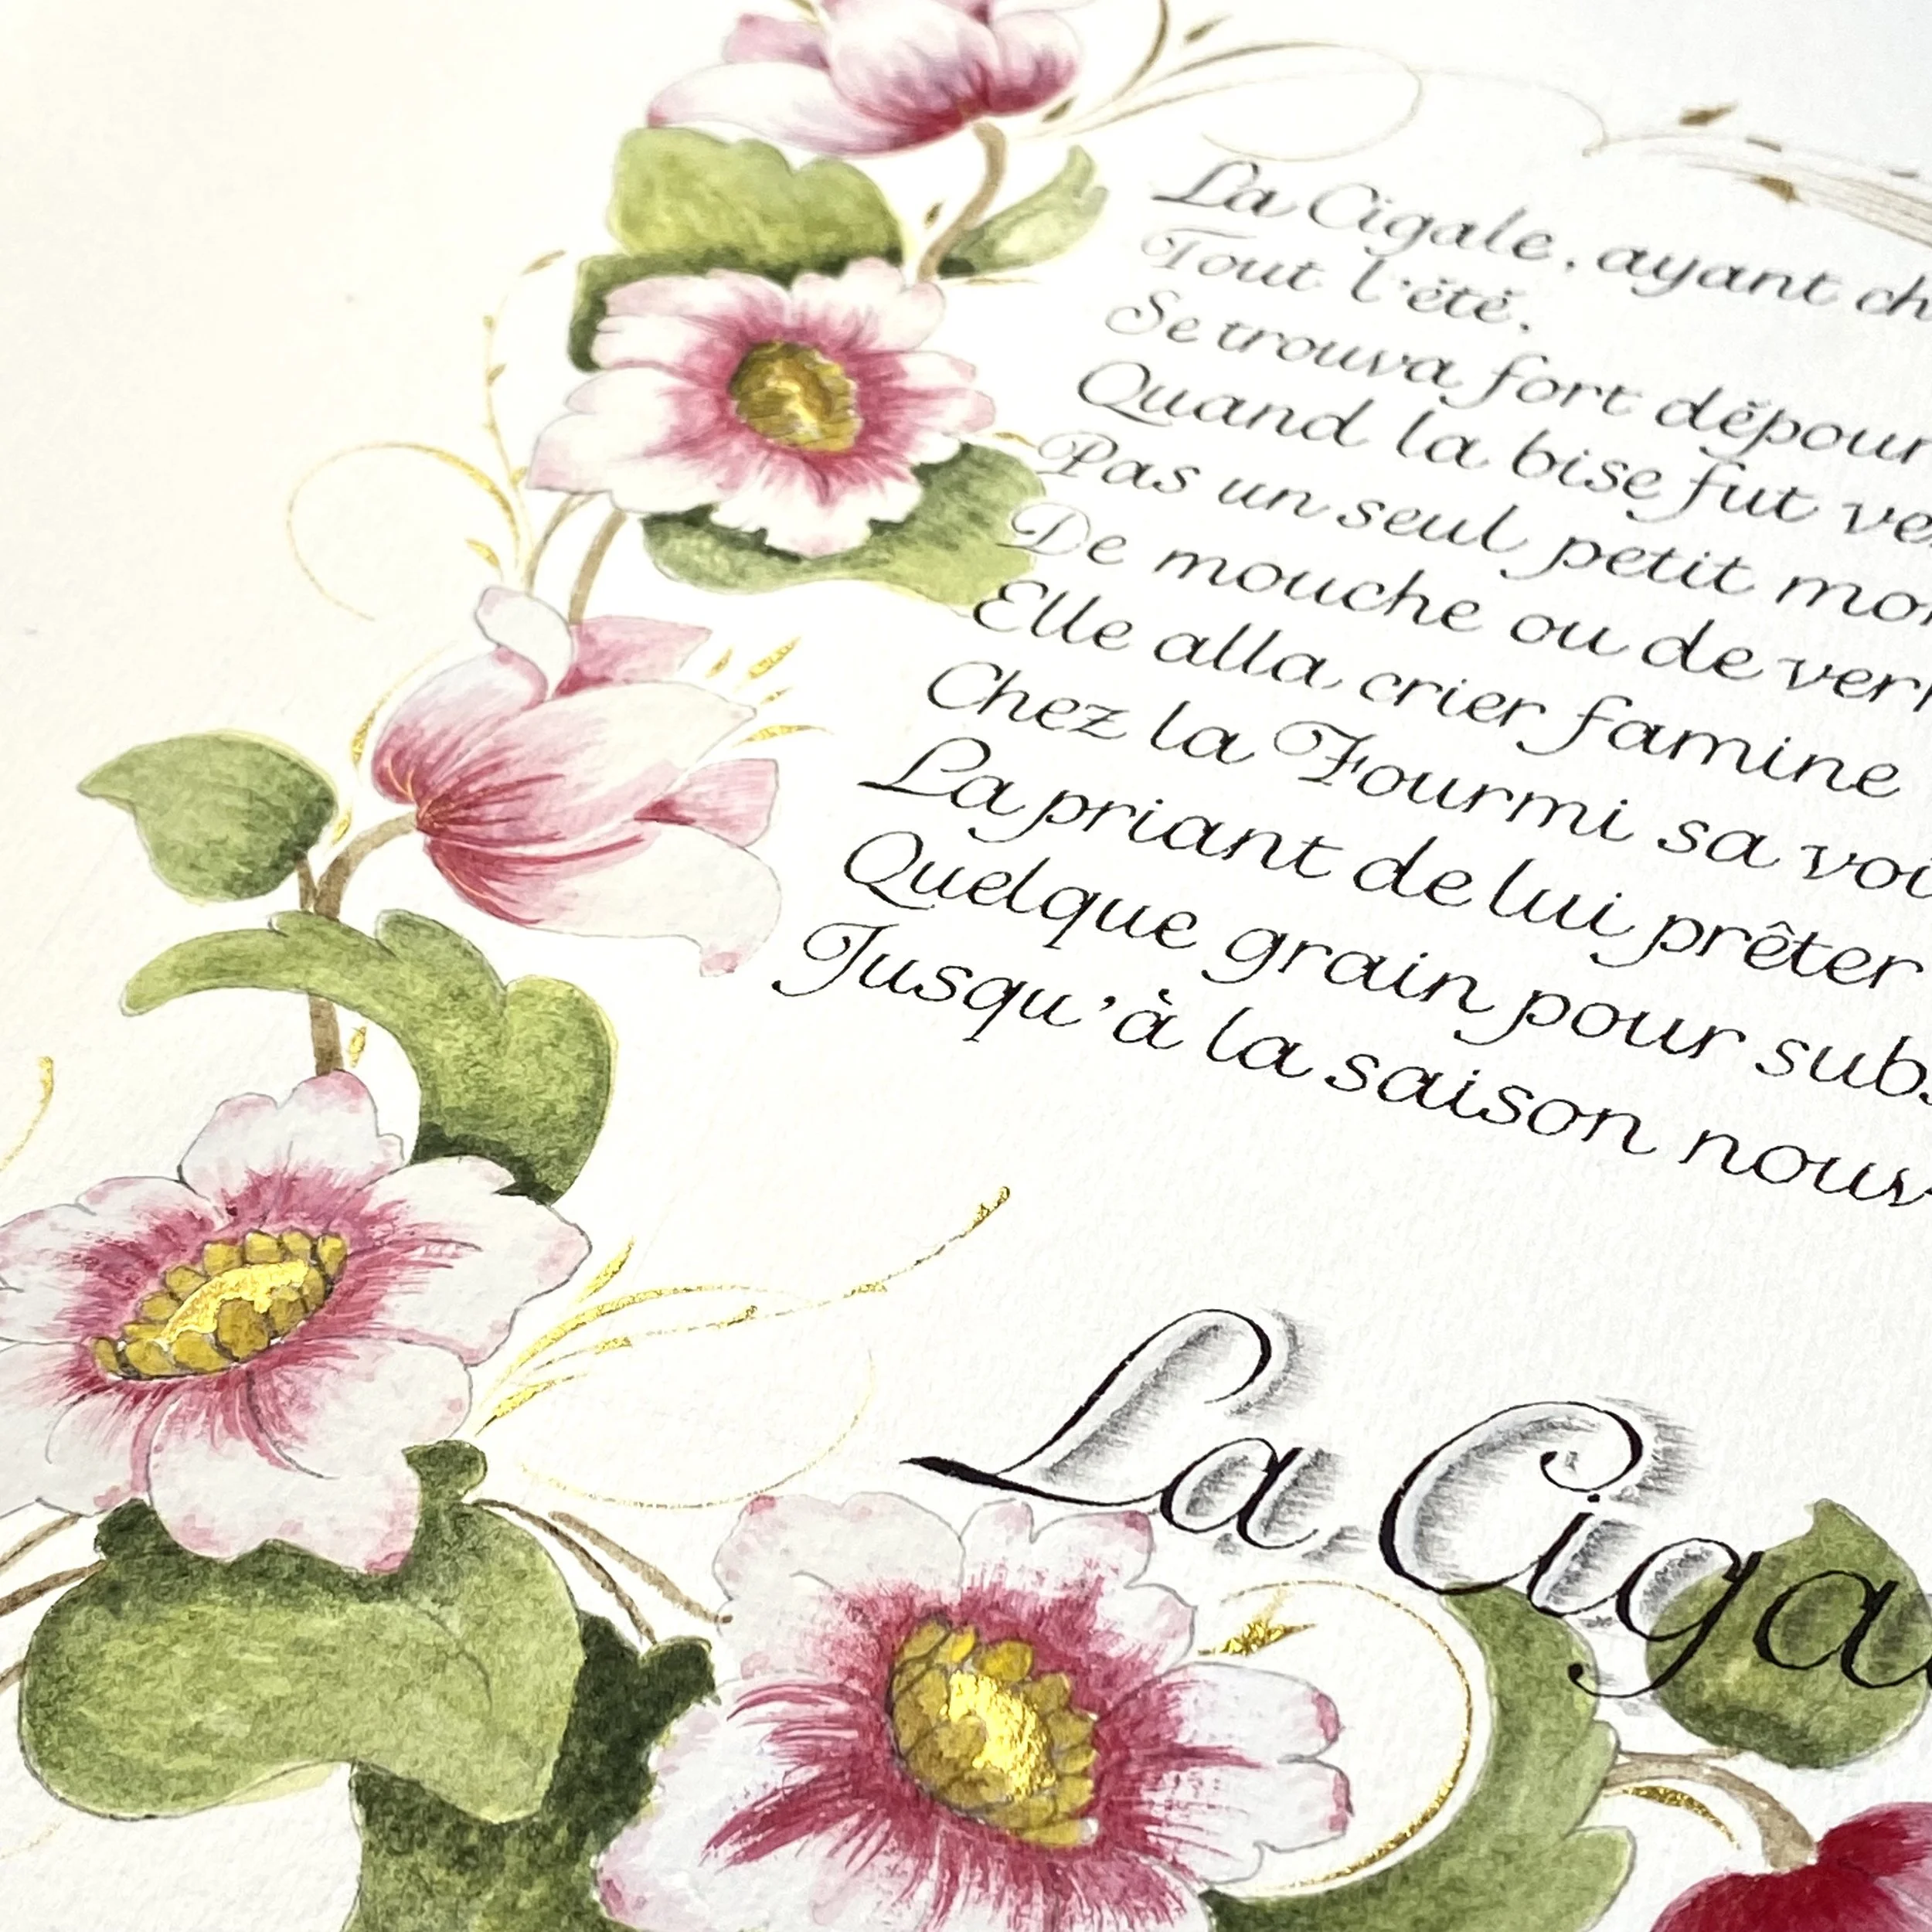 La Cigale, ayant ch
Tout l'été,
Se trouva fort dépour
Quand la bise fut ve
Pas un seul petit mor
De mouche ou de verm
Elle alla crier famine
Chez la Fourmi sa voi
La priant de lui prêter
Quelque grain pour subs
Jusqu'à la saison nouv
La Ciga